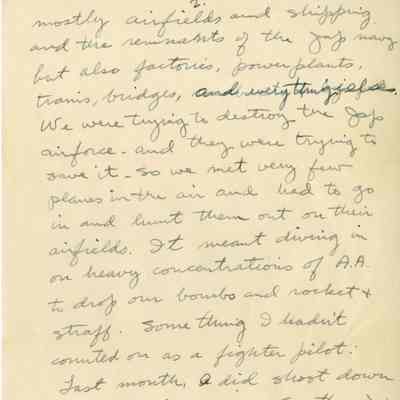 2.
mostly airfields and shipping
and the remnants of the Jap navy
but also factories, power plants,
trains, bridges, and everything else.
We were trying to destroy the Jap
airforce - and they were trying to
save it - so we met very few
planes in the air and had to go
in and hunt them out on their
airfields. It meant diving in
on heavy concentrations of A.A.
to drop our bombs and rocket &
straff. Something I hadn't
counted on as a fighter pilot.
Last month, I did shoot down